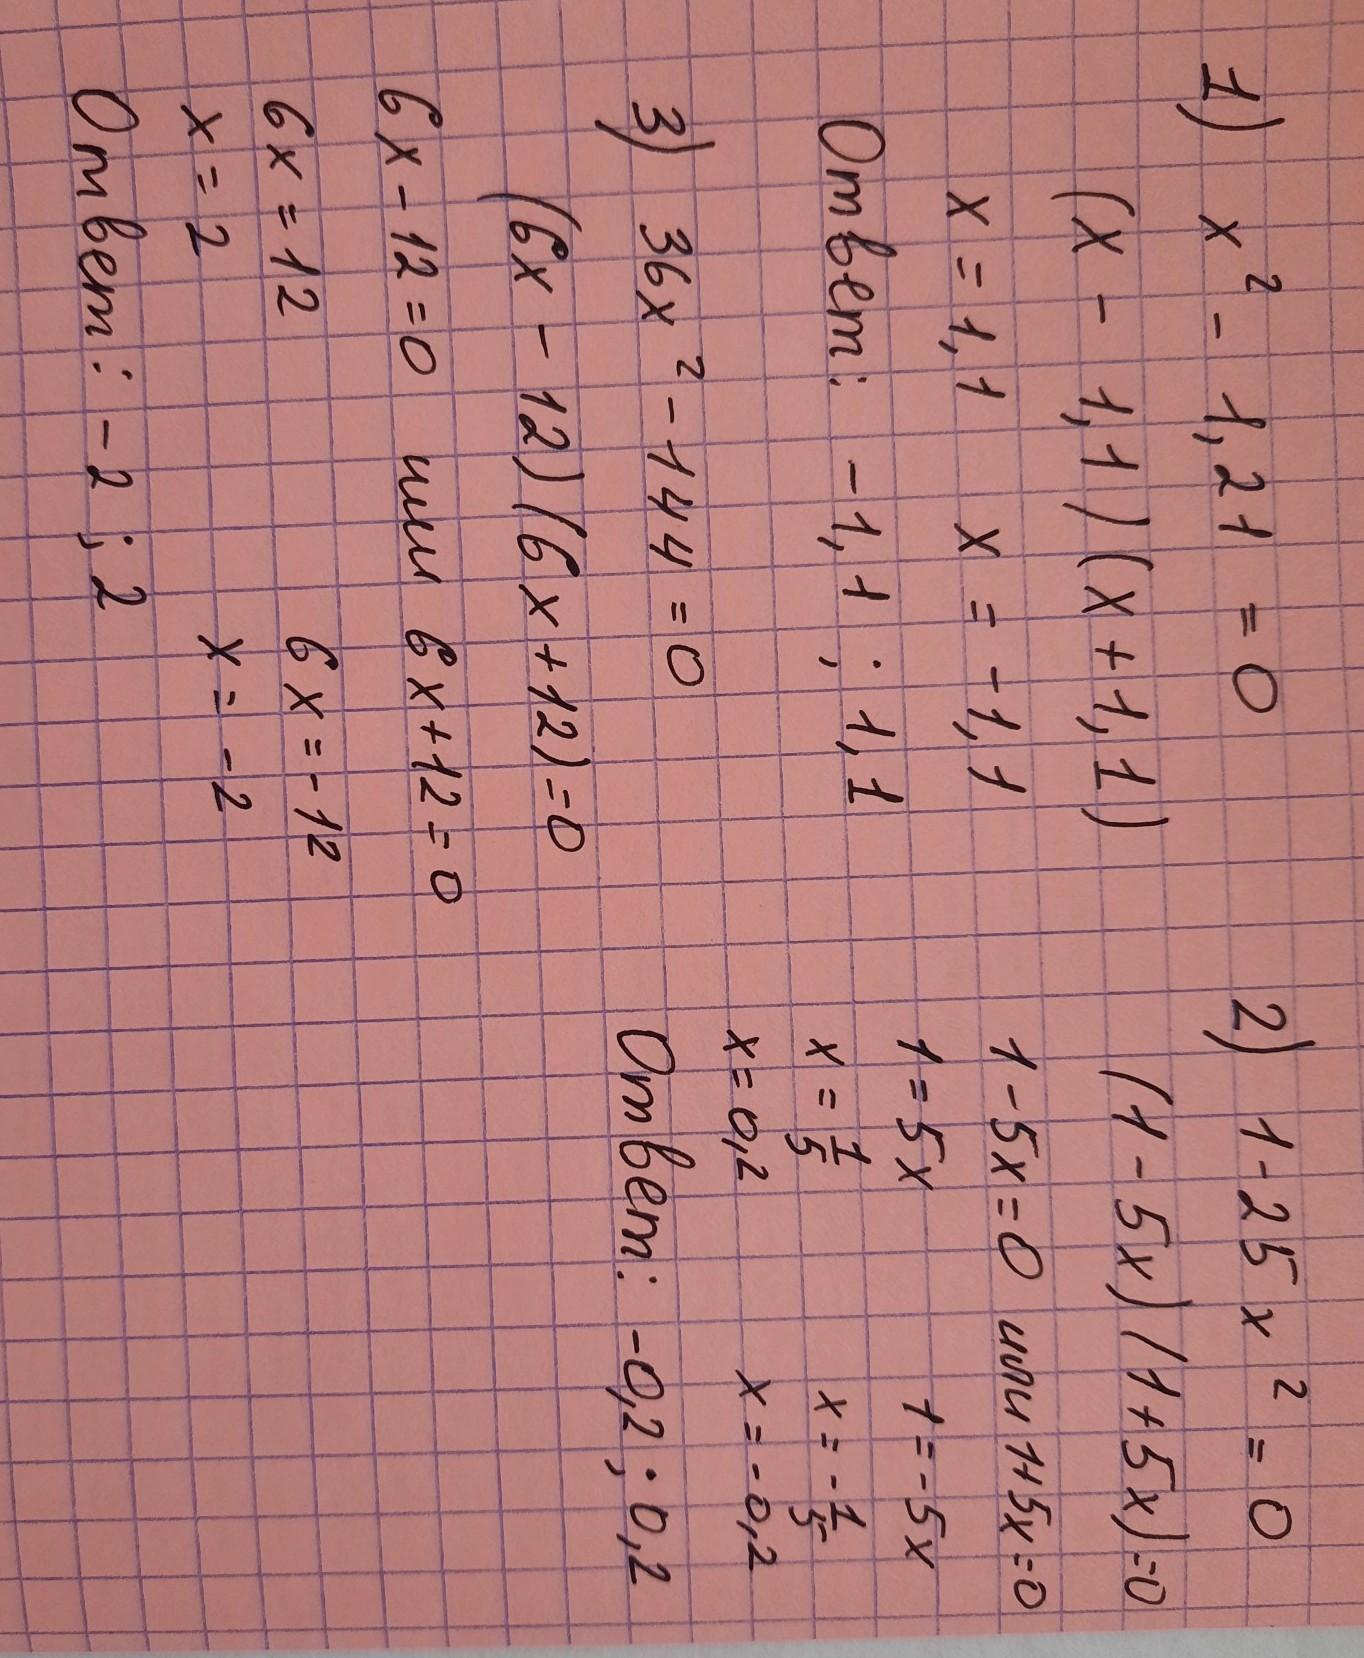 1) x² - 1,21 = 0
(x - 1,1)(x + 1,1)
x = 1,1 x = -1,1
Ответ: -1,1 ; 1,1
2) 1 - 25x² = 0
(1 - 5x)(1 + 5x) = 0
1 - 5x = 0 или 1 + 5x = 0
1 = 5x 1 = -5x
x = 1/5 x = -1/5
x = 0,2 x = -0,2
Ответ: -0,2 ; 0,2
3) 36x² - 144 = 0
(6x - 12)(6x + 12) = 0
6x - 12 = 0 или 6x + 12 = 0
6x = 12 6x = -12
x = 2 x = -2
Ответ: -2 ; 2